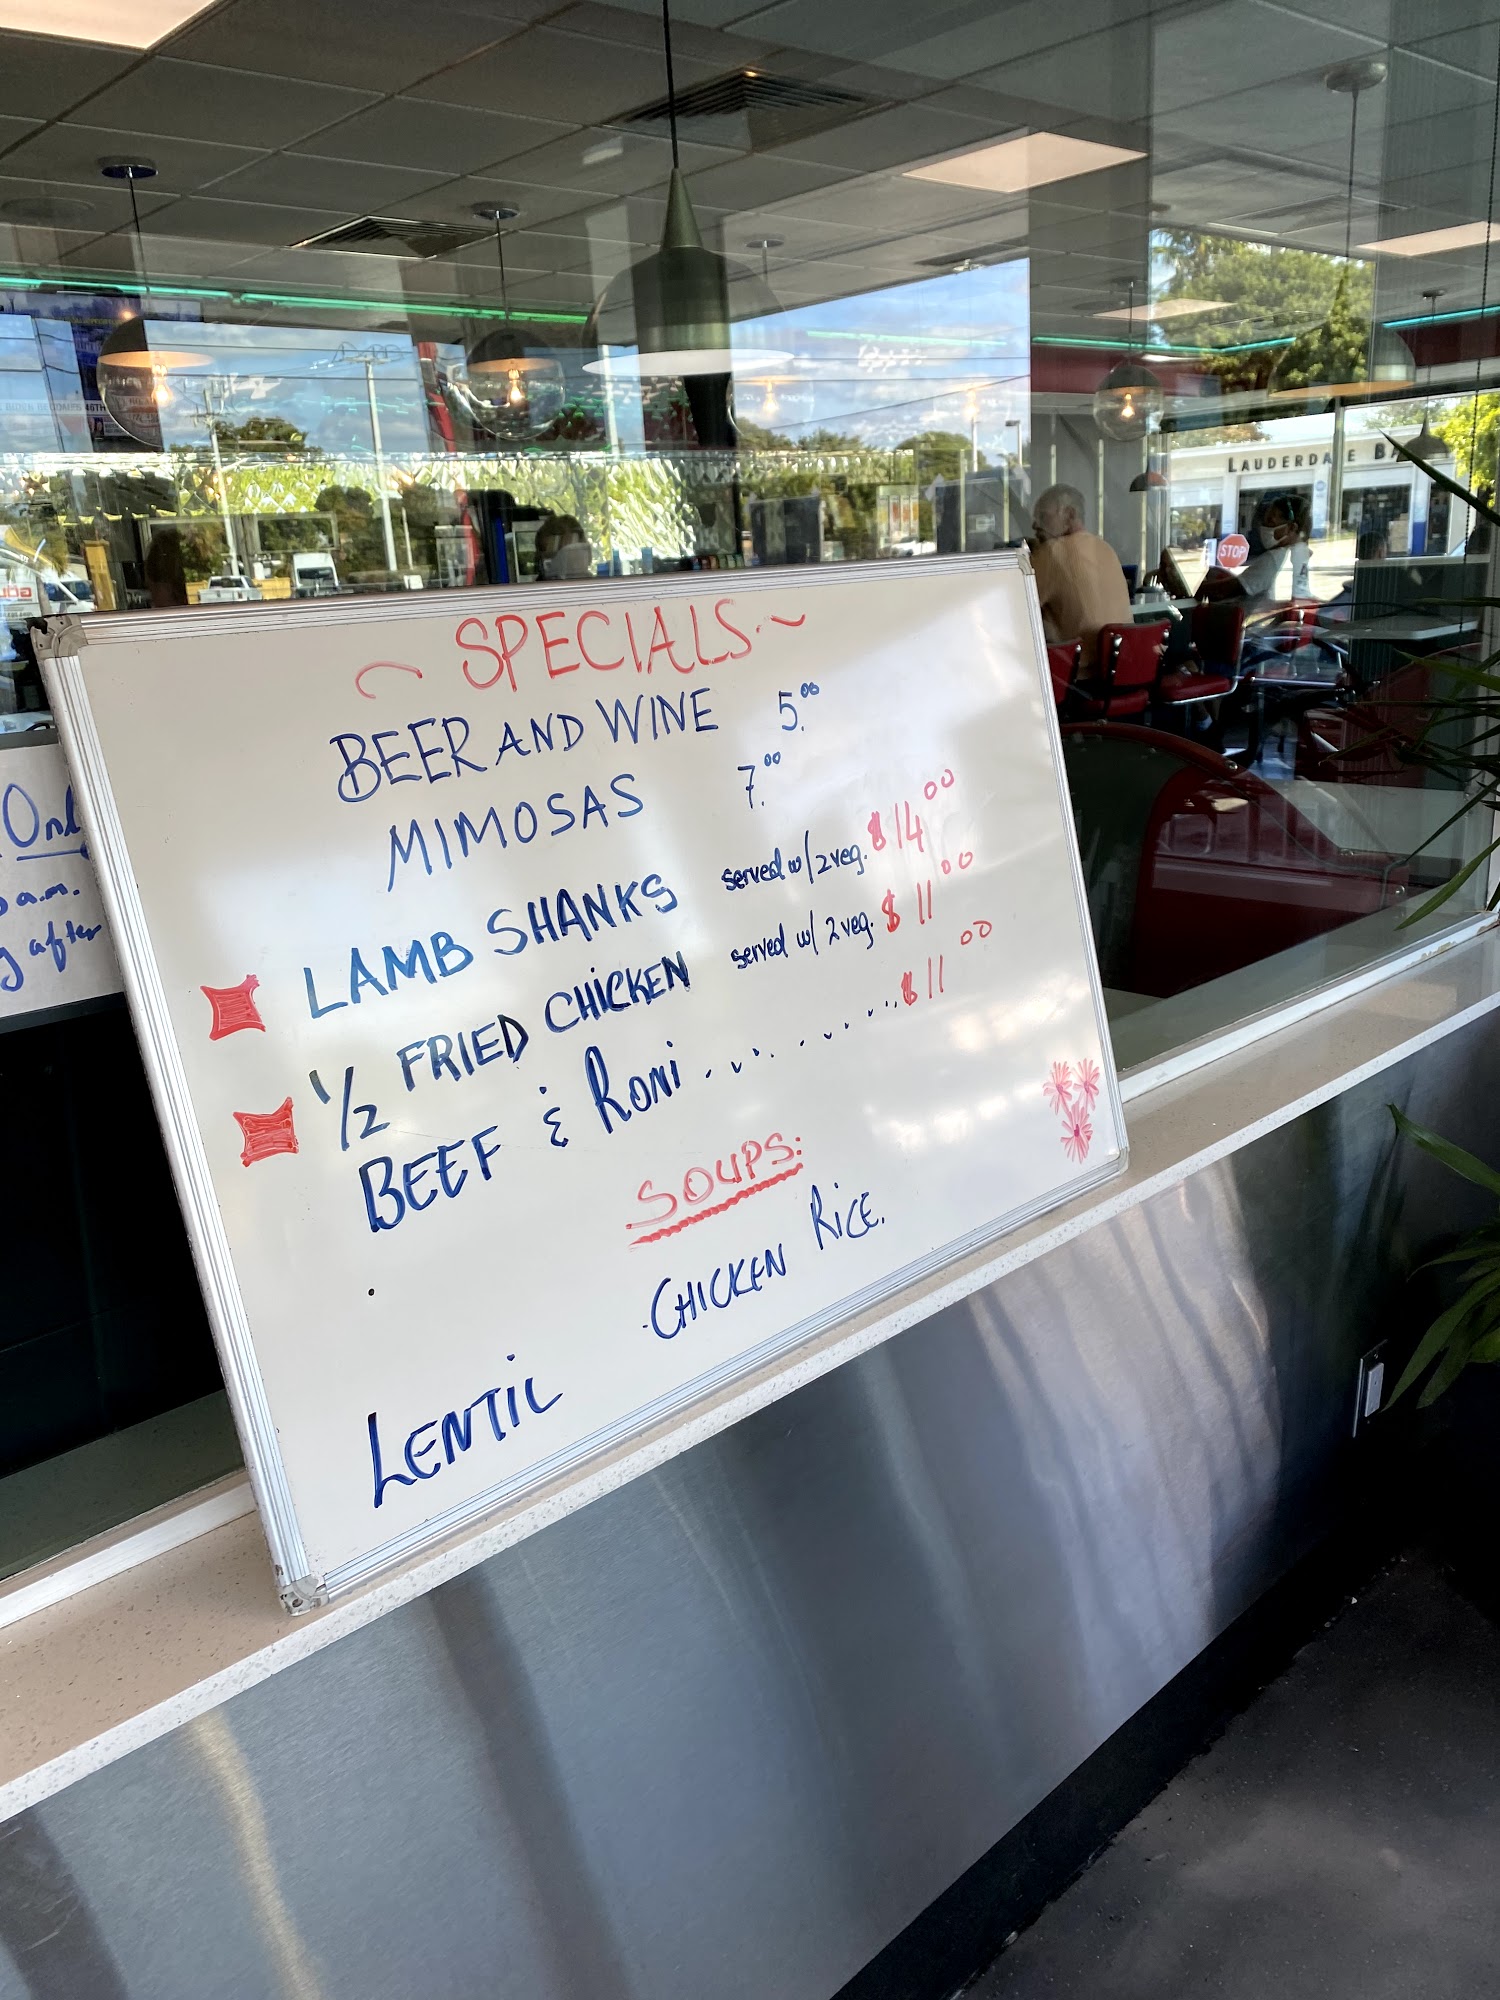 SPECIALS
BEER AND WINE 5.00
MIMOSAS 7.00
LAMB SHANKS served w/2 veg. $14 00
1/2 FRIED CHiCKEN served w/ 2 veg. $11 00
BEEF & RONi ........... $11 00
SOUPS:
CHICKEN RiCE.
LENTIL
a.m.
after
LAUDERDALE BA
STOP